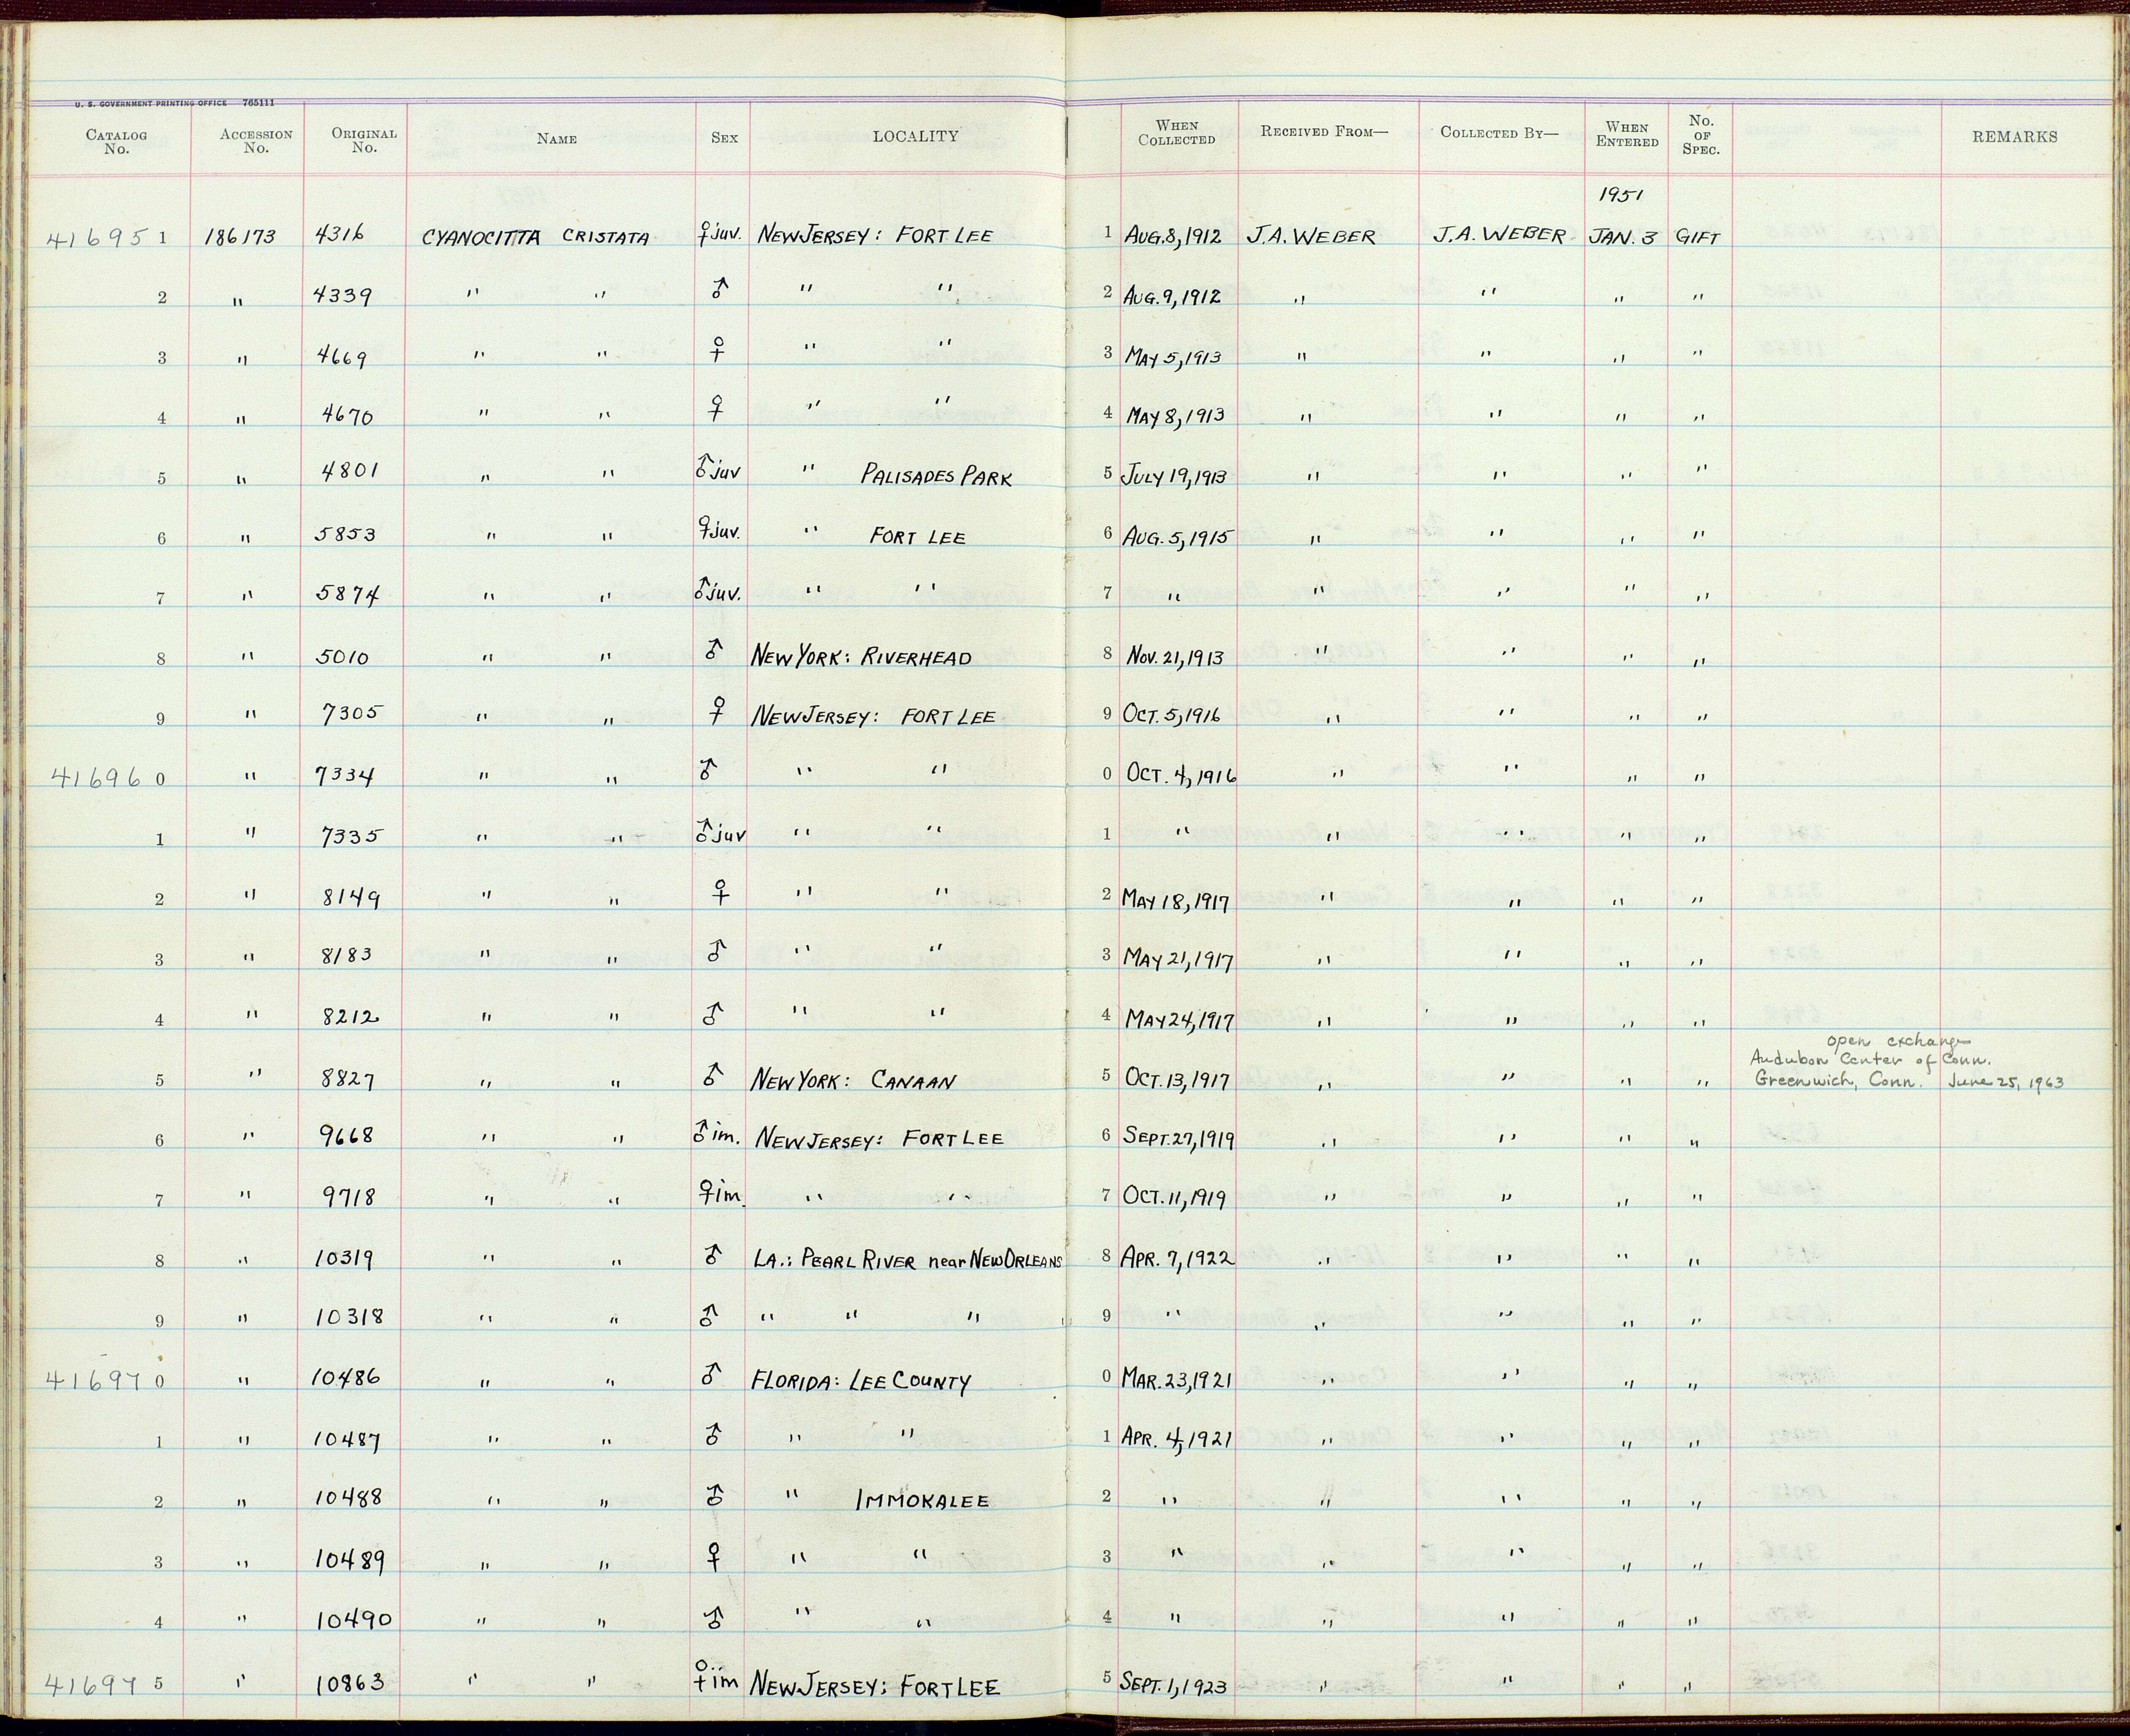 U. S. GOVERNMENT PRINTING OFFICE 765111
CATALOG No. ACCESSION No. ORIGINAL No. NAME SEX LOCALITY WHEN COLLECTED RECEIVED FROM— COLLECTED BY— WHEN ENTERED No. OF SPEC. REMARKS
1951
41695 1 186173 4316 CYANOCITTA CRISTATA ♀ juv. NEW JERSEY: FORT LEE 1 AUG. 8, 1912 J.A. WEBER J.A. WEBER JAN. 3 GIFT
2 " 4339 " " ♂ " " 2 AUG. 9, 1912 " " " "
3 " 4669 " " ♀ " " 3 MAY 5, 1913 " " " "
4 " 4670 " " ♀ " " 4 MAY 8, 1913 " " " "
5 " 4801 " " ♂ juv " PALISADES PARK 5 JULY 19, 1913 " " " "
6 " 5853 " " ♀ juv. " FORT LEE 6 AUG. 5, 1915 " " " "
7 " 5874 " " ♂ juv. " " 7 " " " " "
8 " 5010 " " ♂ NEW YORK: RIVERHEAD 8 NOV. 21, 1913 " " " "
9 " 7305 " " ♀ NEW JERSEY: FORT LEE 9 OCT. 5, 1916 " " " "
41696 0 " 7334 " " ♂ " " 0 OCT. 4, 1916 " " " "
1 " 7335 " " ♂ juv " " 1 " " " " "
2 " 8149 " " ♀ " " 2 MAY 18, 1917 " " " "
3 " 8183 " " ♂ " " 3 MAY 21, 1917 " " " "
4 " 8212 " " ♂ " " 4 MAY 24, 1917 " " " "
open exchange
Audubon Center of Conn.
5 " 8827 " " ♂ NEW YORK: CANAAN 5 OCT. 13, 1917 " " " " Greenwich, Conn. June 25, 1963
6 " 9668 " " ♂ im. NEW JERSEY: FORT LEE 6 SEPT. 27, 1919 " " " "
7 " 9718 " " ♀ im. " " 7 OCT. 11, 1919 " " " "
8 " 10319 " " ♂ LA.: PEARL RIVER near NEW ORLEANS 8 APR. 7, 1922 " " " "
9 " 10318 " " ♂ " " " 9 " " " " "
41697 0 " 10486 " " ♂ FLORIDA: LEE COUNTY 0 MAR. 23, 1921 " " " "
1 " 10487 " " ♂ " " 1 APR. 4, 1921 " " " "
2 " 10488 " " ♂ " IMMOKALEE 2 " " " " "
3 " 10489 " " ♀ " " 3 " " " " "
4 " 10490 " " ♂ " " 4 " " " " "
41697 5 " 10863 " " ♀ im NEW JERSEY: FORT LEE 5 SEPT. 1, 1923 " " " "